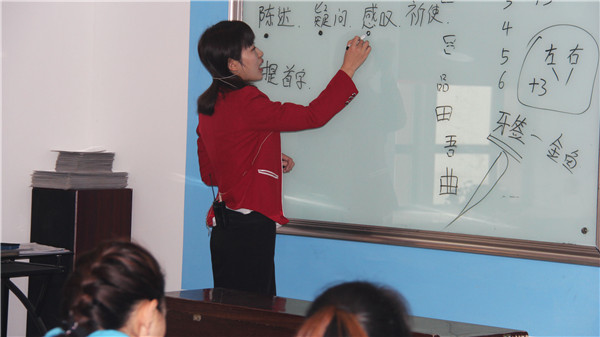 陈述.疑问.感叹.祈使.
提首字.
3
4
5
6
品
田
吾
曲
左右
+3
牙签－金鱼